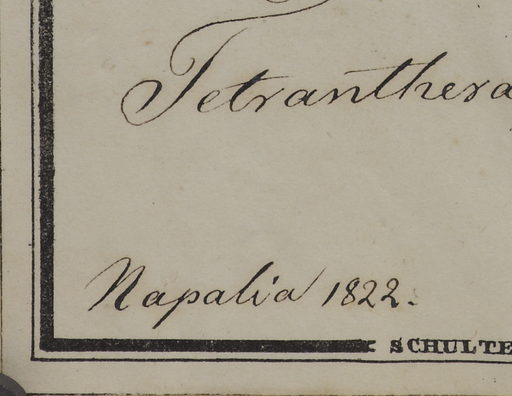 Tetranthera
Napalia 1822.
SCHULTE